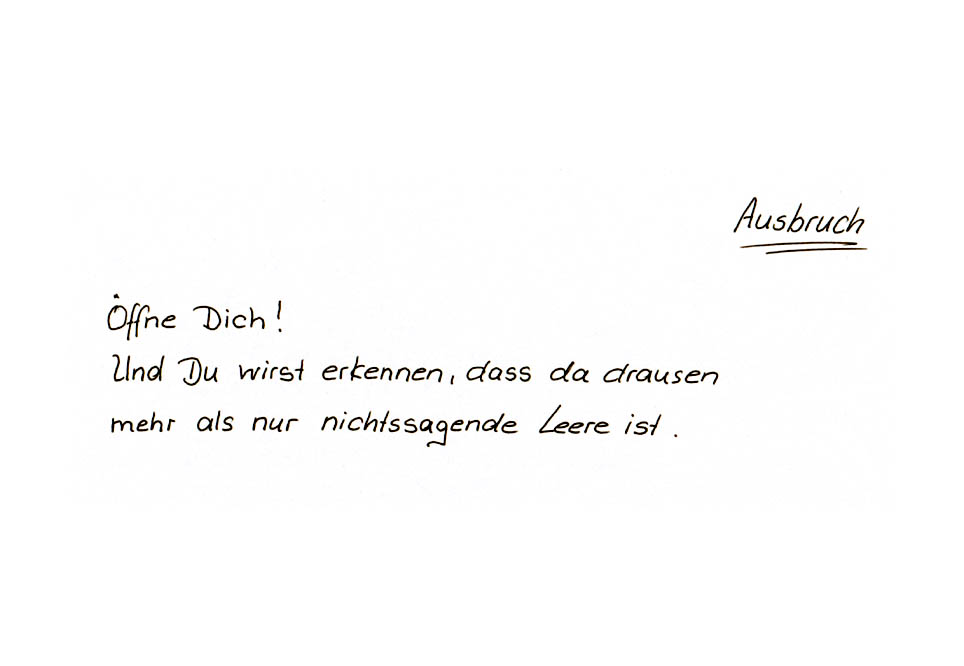 Ausbruch
Öffne Dich!
Und Du wirst erkennen, dass da drausen
mehr als nur nichtssagende Leere ist.